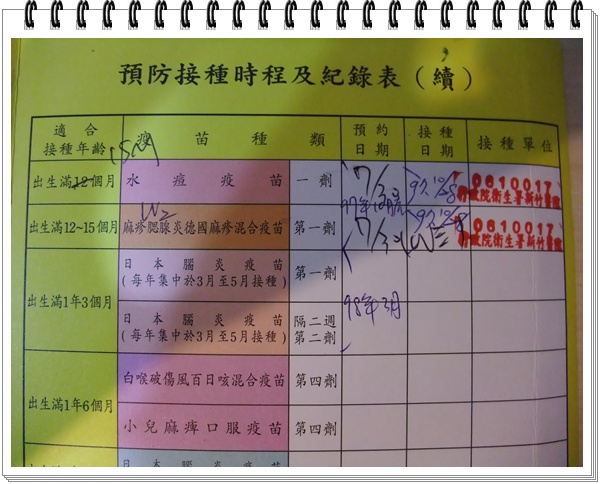 預防接種時程及紀錄表(續)
適合接種年齡 疫苗種類 預約日期 接種日期 接種單位
出生滿12個月 水痘疫苗 一劑 7/30 0610017
行政院衛生署新竹醫院
出生滿12~15個月 麻疹腮腺炎德國麻疹混合疫苗 第一劑 7/30 0610017
行政院衛生署新竹醫院
出生滿1年3個月 日本腦炎疫苗 第一劑
(每年集中於3月至5月接種)
98年3月
日本腦炎疫苗 隔二週
(每年集中於3月至5月接種) 第二劑
出生滿1年6個月 白喉破傷風百日咳混合疫苗 第四劑
小兒麻痺口服疫苗 第四劑
日本腦炎疫苗